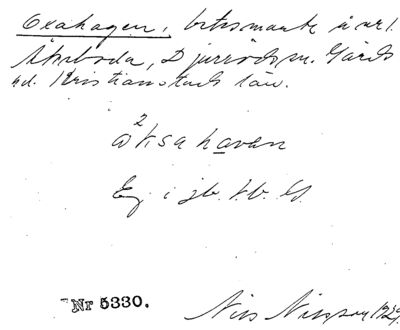 Oxahagen, betesmark å nr 1
Åkeboda, Djurröds sn. Gärds
hd. Kristianstads län.
2
ωksa havan
Ej i jb. kb. GS.
Nr 5330.
Nils Nilsson 1929.